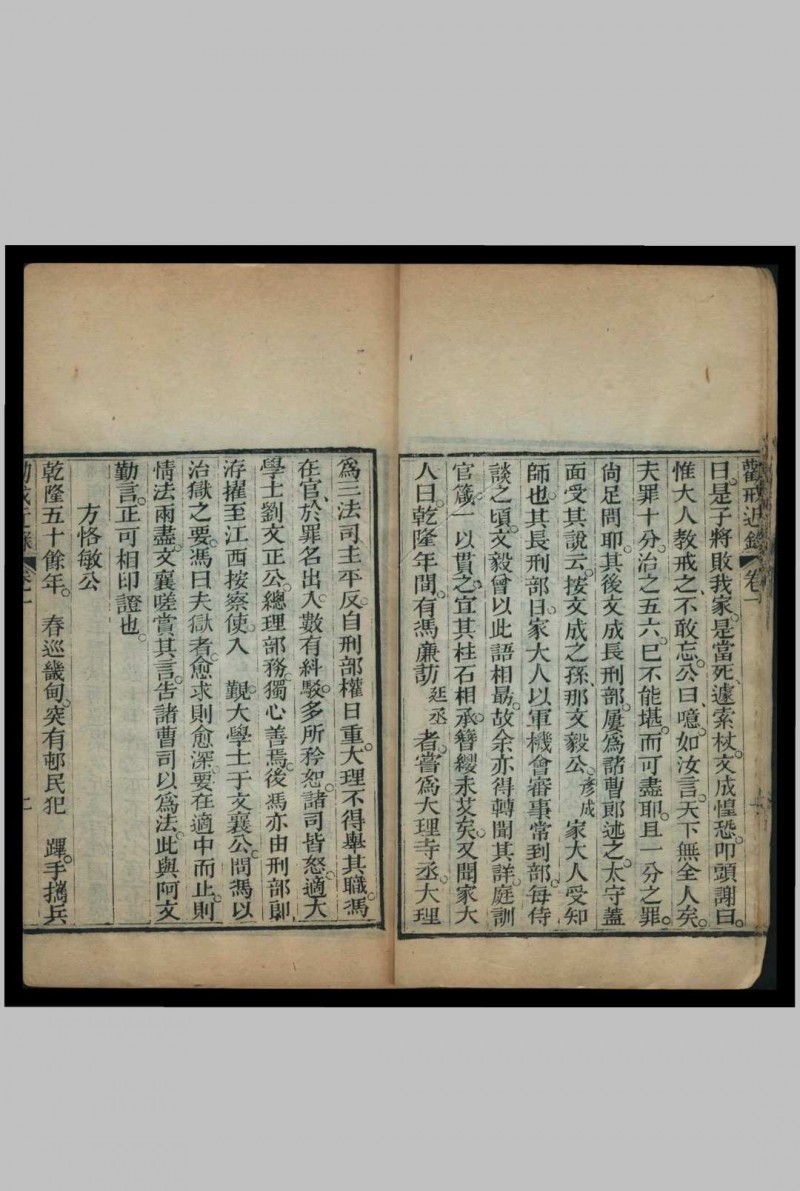 勸戒近錄 卷一
曰。是子將敗我家。是當死、遽索杖。文成惶恐。叩頭謝曰。
惟大人教戒之、不敢忘。公曰、噫。如汝言。天下無全人矣。
夫罪十分。治之五六。已不能堪。而可盡耶。且一分之罪。
尙足問耶。其後文成長刑部。屢爲諸曹郎述之。太守蓋
面受其說云。按文成之孫、那文毅公。彥成 家大人受知
師也。其長刑部日。家大人以軍機會審事常到部。每侍
談之頃。文毅曾以此語相勗。故余亦得轉聞其詳。庭訓
官箴。一以貫之。宜其柱石相承。簪纓未艾矣。又聞家大
人曰。乾隆年間。有馮廉訪 廷丞 者。嘗爲大理寺丞。大理
爲三法司主平反。自刑部權日重。大理不得舉其職。馮
在官、於罪名出入。數有糾駁。多所矜恕。諸司皆怒。適大
學士劉文正公。總理部務。獨心善焉。後馮亦由刑部郎
洊擢至江西按察使。入 覲。大學士于文襄公。問馮以
治獄之要。馮曰夫獄者。愈求則愈深。要在適中而止。則
情法兩盡。文襄嗟賞其言。告諸曹司以爲法。此與阿文
勤言。正可相印證也。
方恪敏公
乾隆五十餘年。 春巡畿甸。突有邨民犯 蹕。手擕兵
勸戒近錄 卷一